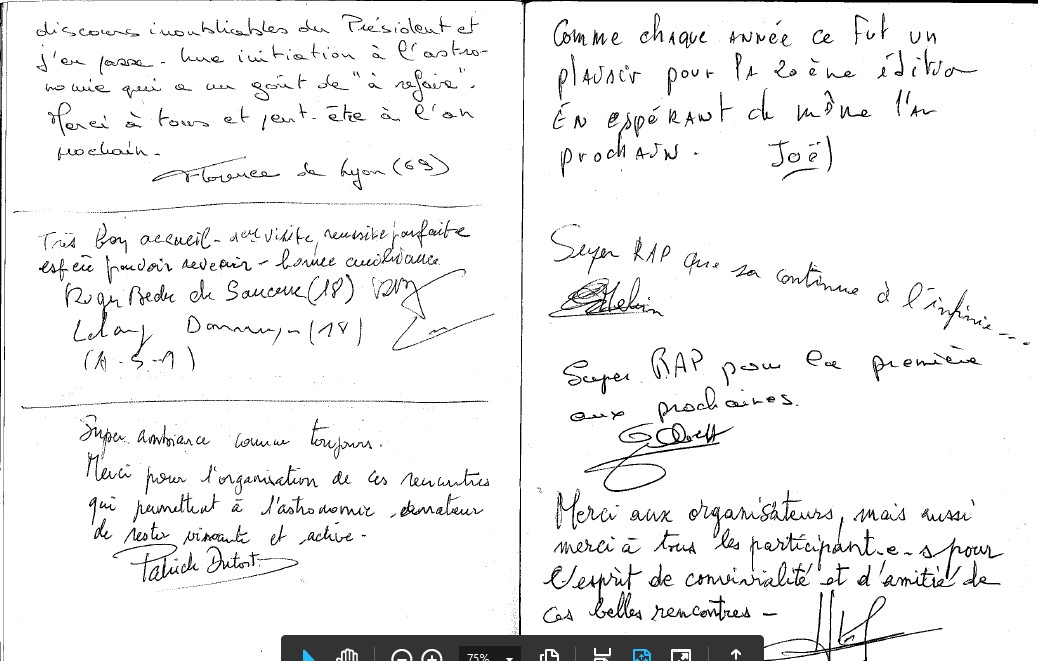 discours inoubliables du Président et
j'en passe - Une initiation à l'astro-
nomie qui a un goût de "à refaire".
Merci à tous et peut-être à l'an
prochain.
Florence de Lyon (69)
Très bon accueil - 1ère visite, reussite parfaite
espère pouvoir revenir - bonne ambiance
Roger de Sancerre (18)
(18)
(A-S-1)
Super ambiance comme toujours.
Merci pour l'organisation de ces rencontres
qui permettent à l'astronomie amateur
de rester vivante et active -
Patrick Dutort
Comme chaque année ce fut un
plaisir pour la 20 ène édition
En espérant de même l'an
prochain. Joël
Super RAP que sa continue à l'infinie...
Super RAP pour la première
aux prochaines.
Merci aux organisateurs, mais aussi
merci à tous les participant-e-s pour
l'esprit de convivialité et d'amitié de
ces belles rencontres -
75%